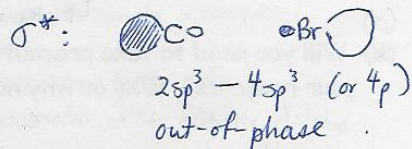 σ*: C Br
2sp³ 4sp³ (or 4p)
out-of-phase.